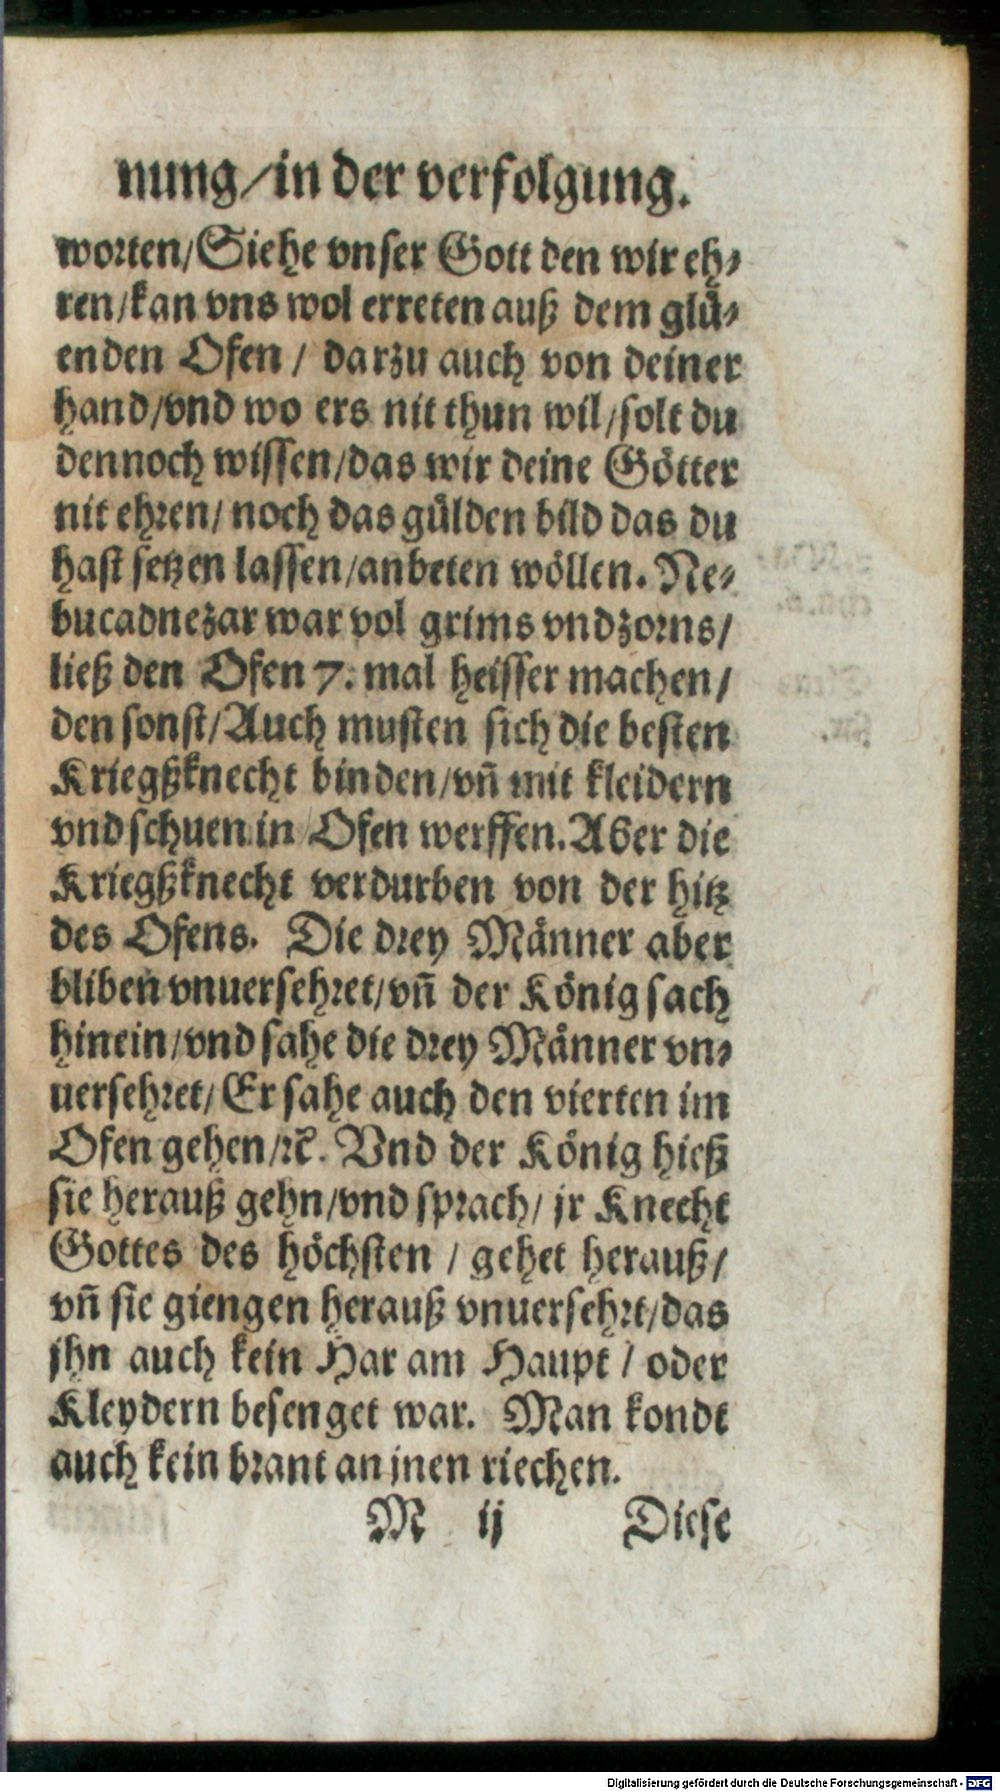 nung/in der verfolgung.
worten/Siehe vnser Gott den wir eh⸗
ren/kan vns wol erreten auß dem glü⸗
enden Ofen / darzu auch von deiner
hand/vnd wo ers nit thun wil/solt du
dennoch wissen/das wir deine Götter
nit ehren/ noch das gülden bild das du
hast setzen lassen/anbeten wöllen. Ne⸗
bucadnezar war vol grims vnd zorns/
ließ den Ofen 7. mal heisser machen/
den sonst/Auch musten sich die besten
Kriegßknecht binden/vn̄ mit kleidern
vnd schuen in Ofen werffen. Aber die
Kriegßknecht verdurben von der hitz
des Ofens. Die drey Männer aber
bliben vnuersehret/vn̄ der König sach
hinein/vnd sahe die drey Männer vn⸗
uersehret/ Er sahe auch den vierten im
Ofen gehen/ꝛc̄. Vnd der König hieß
sie herauß gehn/vnd sprach/ jr Knecht
Gottes des höchsten / gehet herauß/
vn̄ sie giengen herauß vnuersehrt/das
jhn auch kein Har am Haupt / oder
Kleydern besenget war. Man kondt
auch kein brant an jnen riechen.
M ij Diese
Digitalisierung gefördert durch die Deutsche Forschungsgemeinschaft - DFG